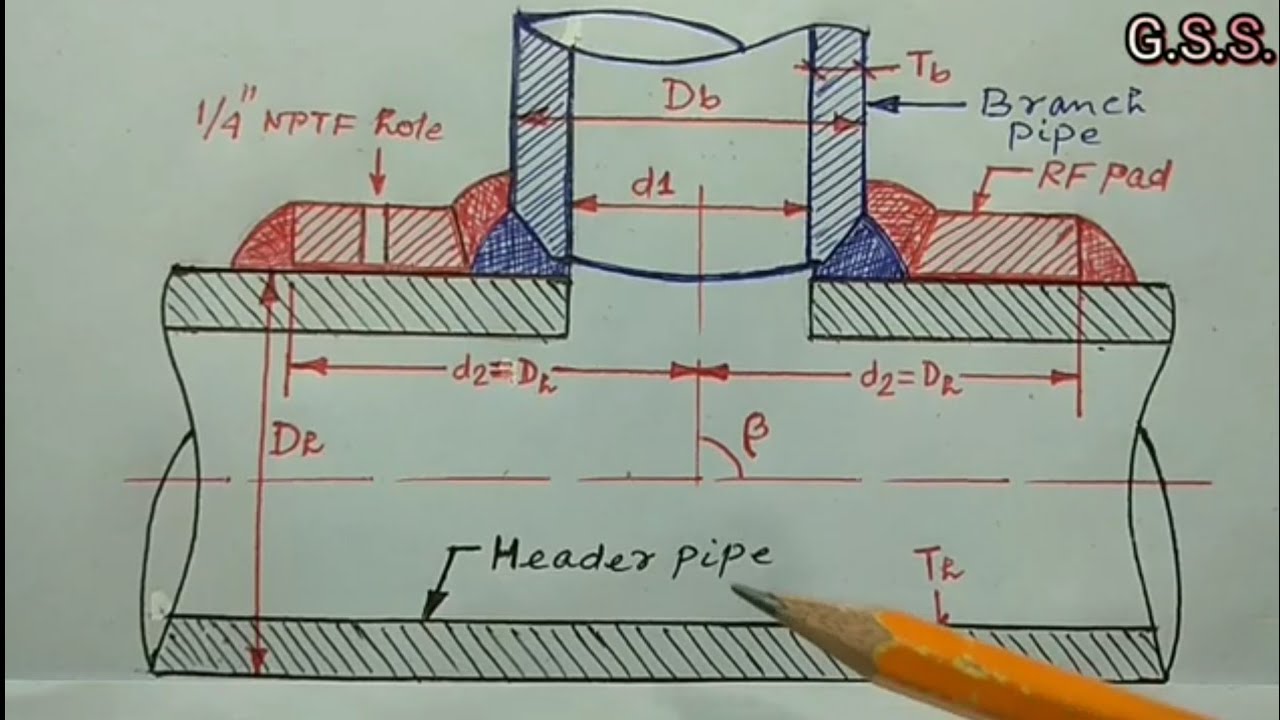 G.S.S.
1/4" NPTF hole
Db
Tb
Branch
pipe
d1
RF pad
d2=Dh
d2=Dh
Dh
β
Header pipe
Th